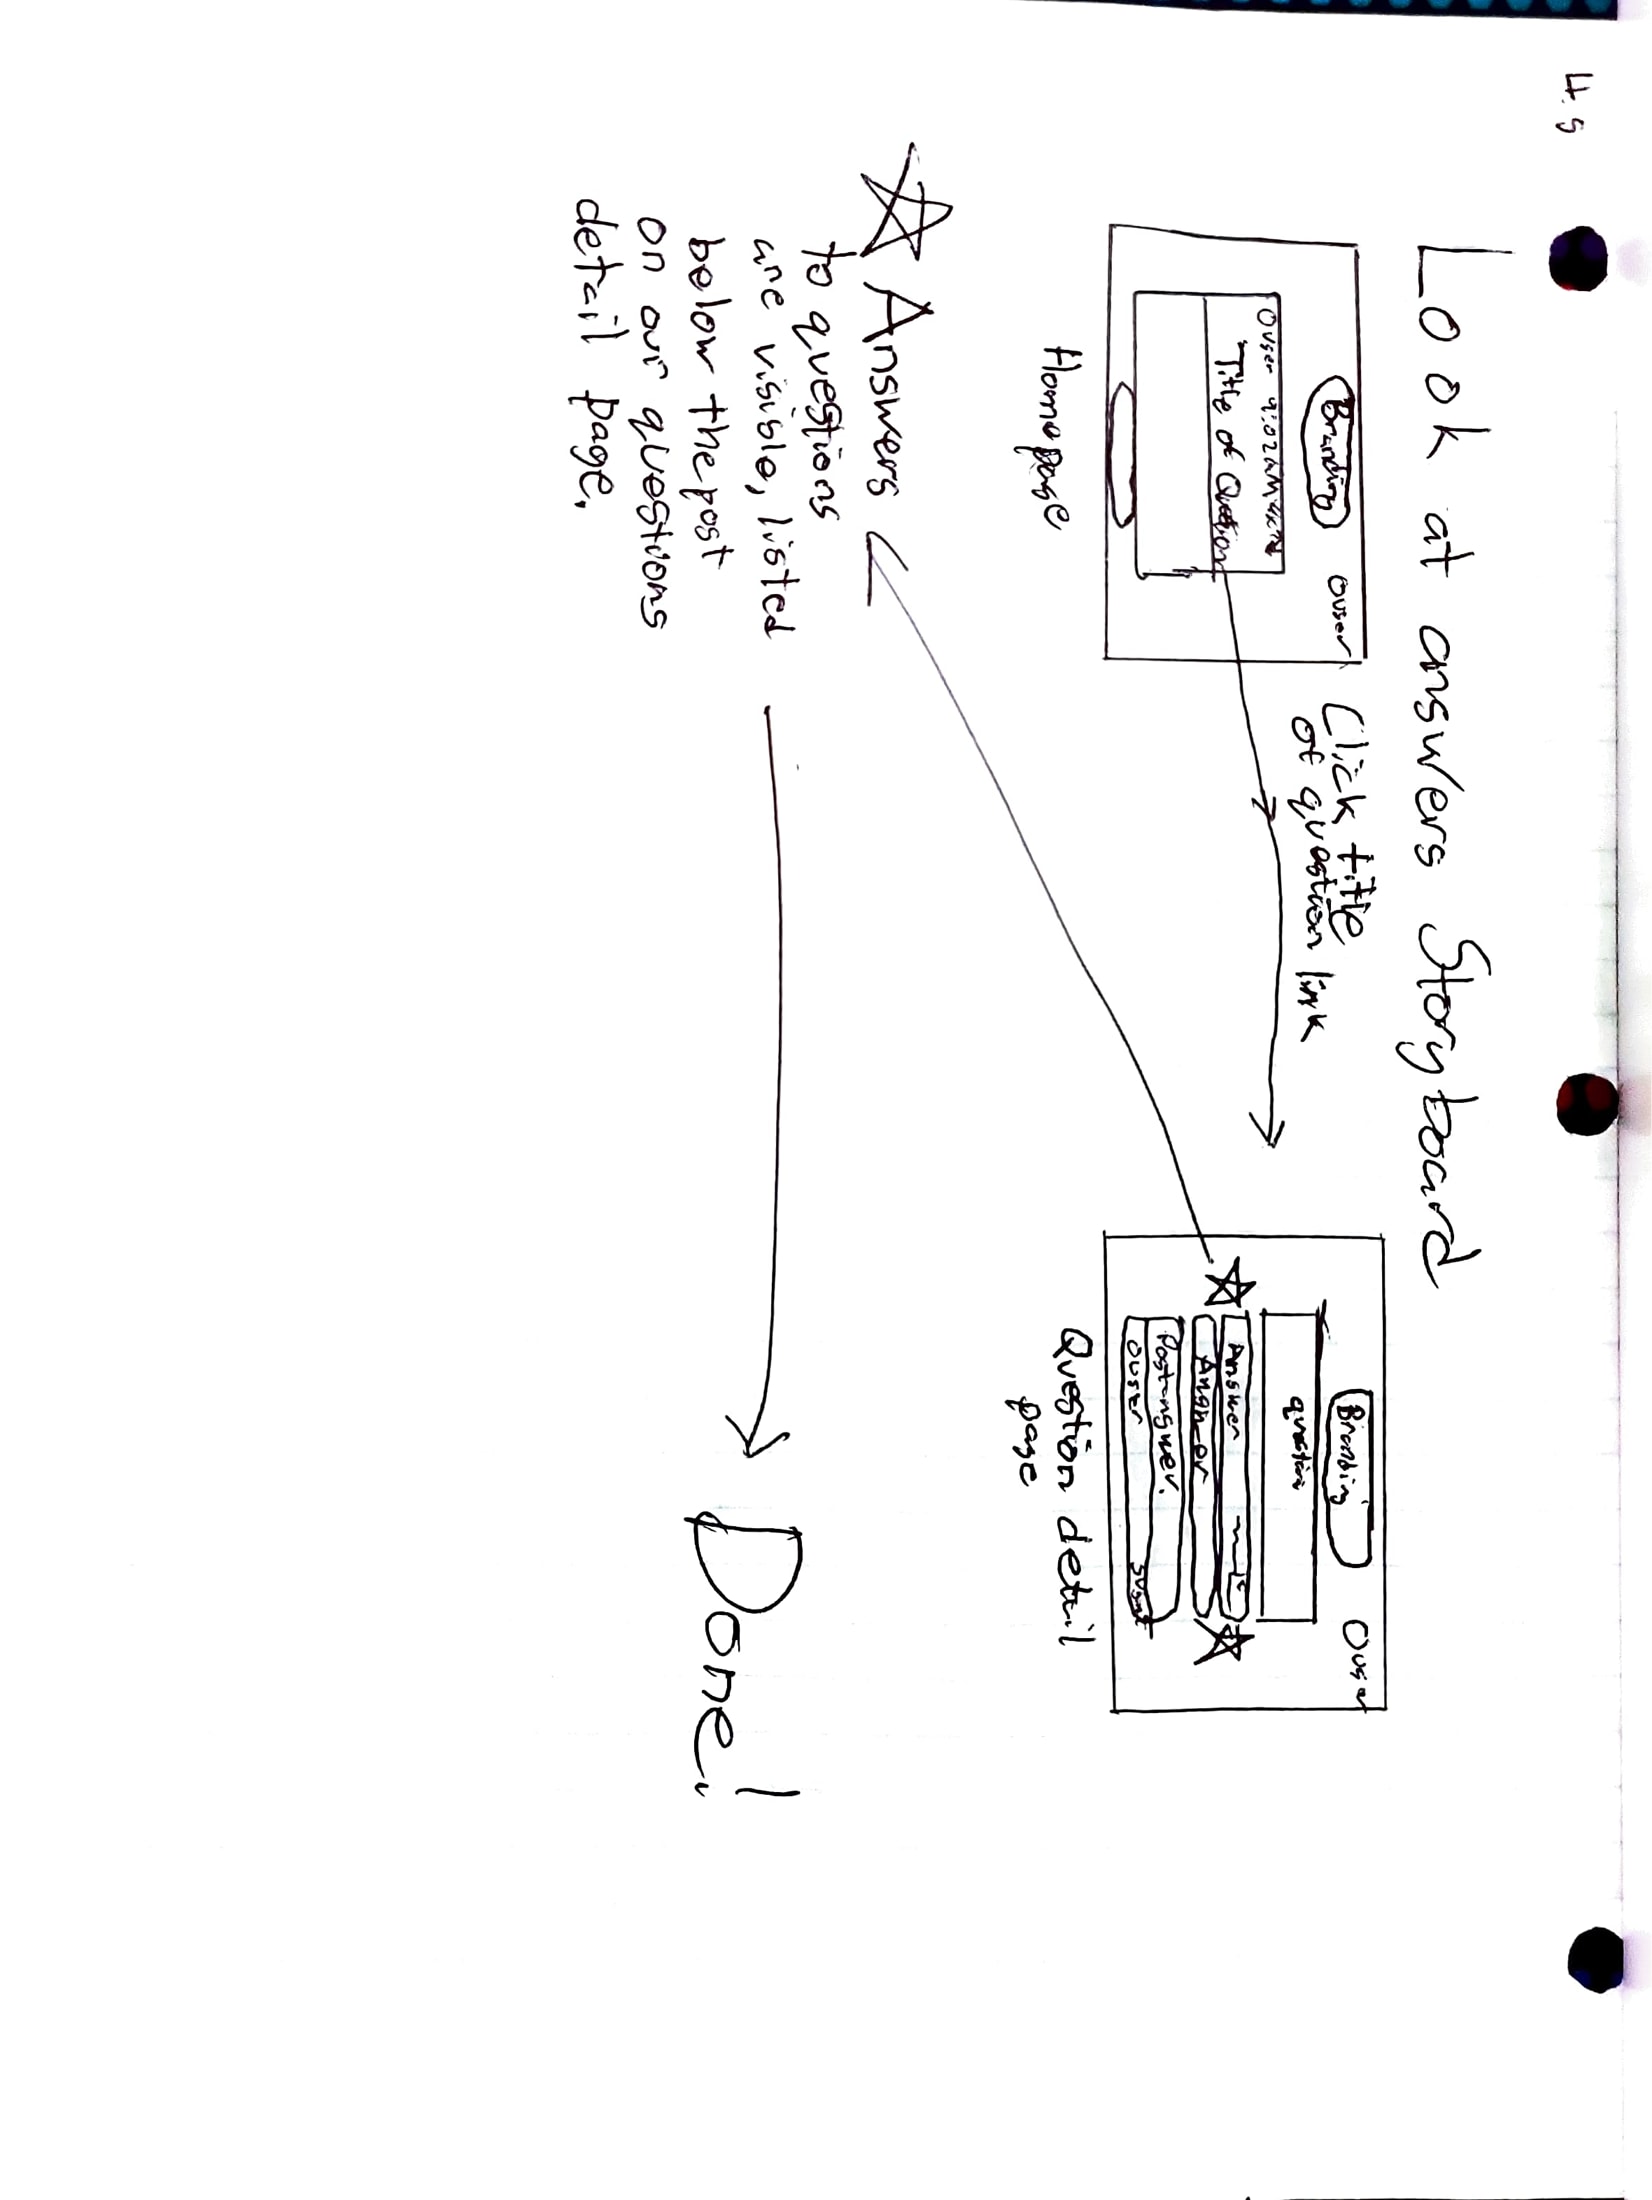 4.5
Look at answers Storyboard
Branding
user
user 9:02AM
Title of Question
Homepage
Click title
of question link
Branding
user
question
Answer
Answer
Post answer.
user
Question detail
page
Answers
to questions
are visible, listed
below the post
on our questions
detail page.
Done!